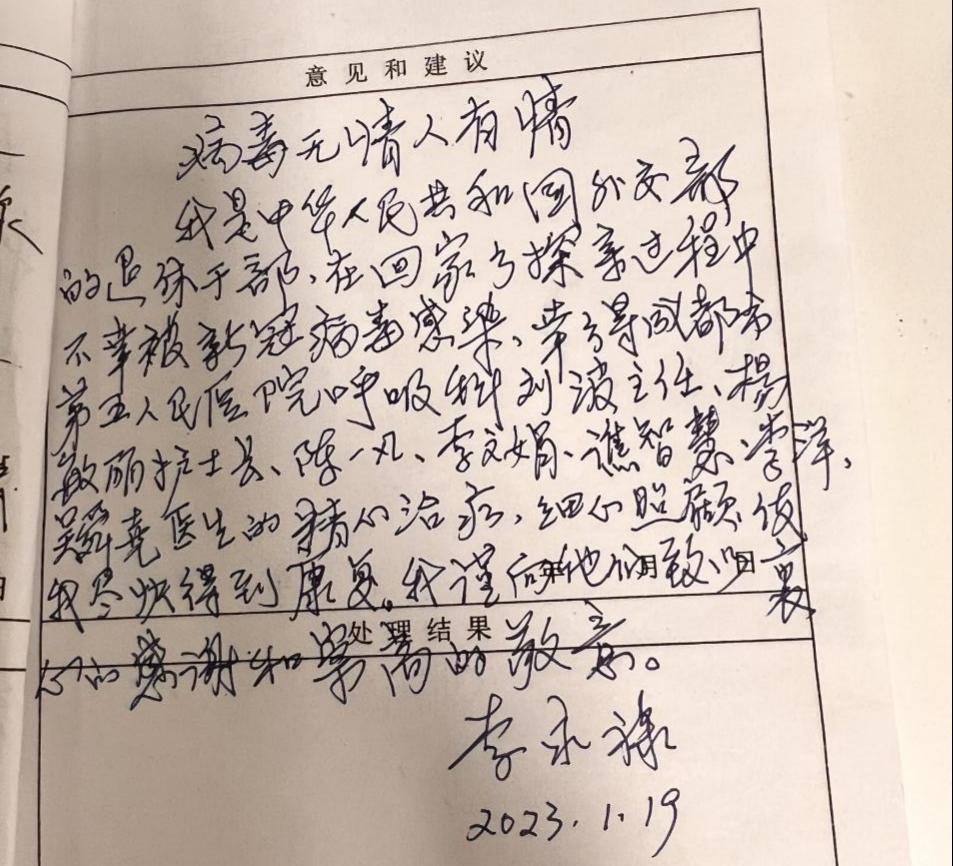 意见和建议
病毒无情人有情
我是中华人民共和国外交部
的退休干部、在回家乡探亲过程中
不幸被新冠病毒感染、幸得成都市
第五人民医院呼吸科刘波主任、杨
敏丽护士长、陈一凡、李文娟、谯智慧、李洋、
医生的精心治疗、细心照顾、使
我尽快得到康复。我谨向他们致以衷
年 月 日
处理结果
心的感谢和崇高的敬意。
李永禄
2023.1.19